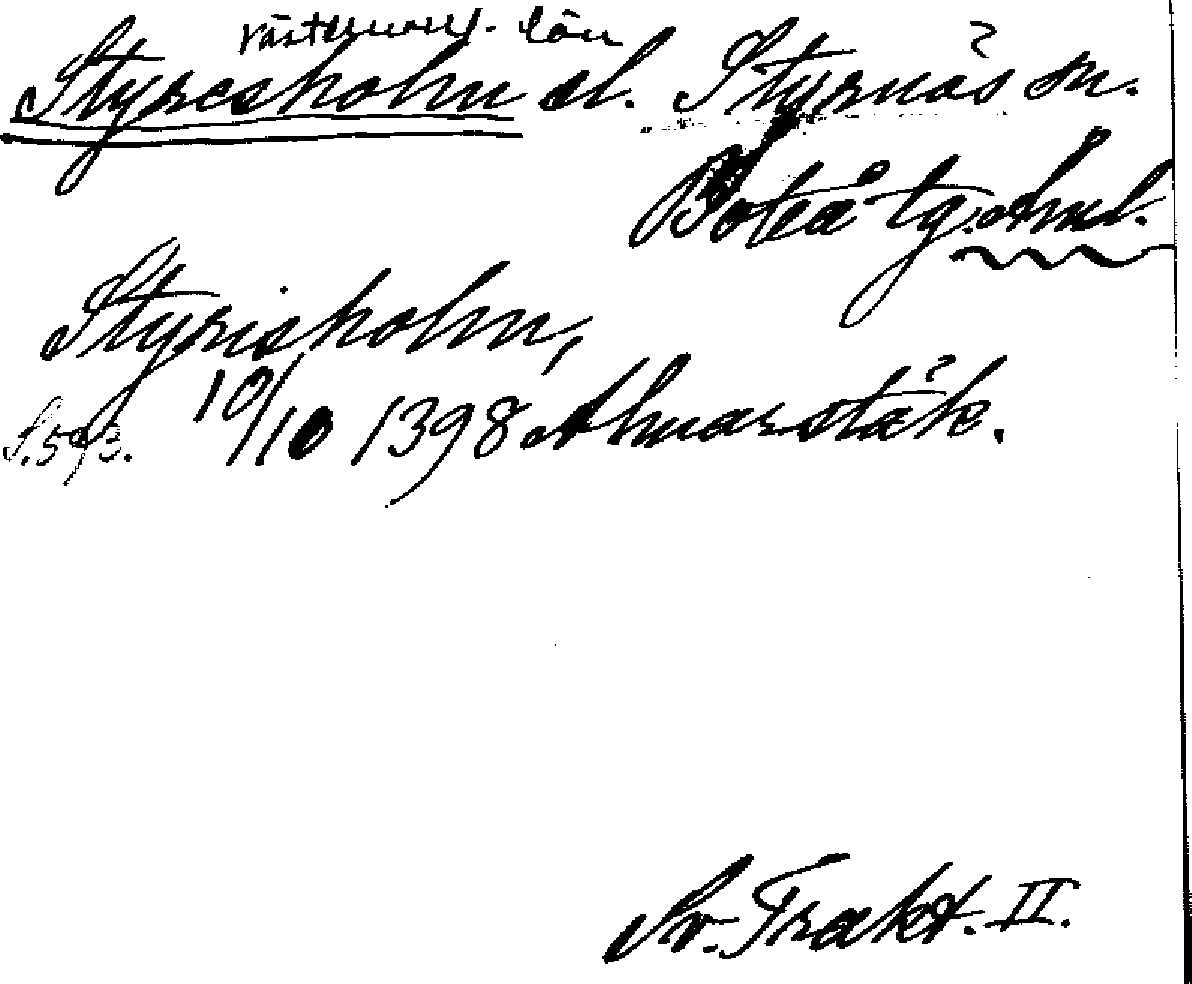 Västernorrl. län
Styresholm sl. Styrnäs sn.
Boteå tg. Åml.
Styrisholm,
S. 593. 10/10 1398 Almarstäk.
Sv. Trakt. II.